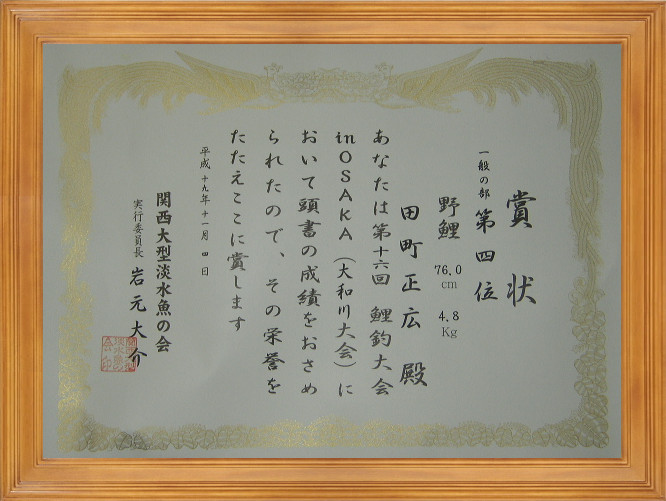 賞状
一般の部 第四位
野鯉 76.0cm 4.8Kg
田町正広 殿
あなたは第十六回 鯉釣大会
inOSAKA(大和川大会)に
おいて頭書の成績をおさめ
られたので、その栄誉を
たたえここに賞します
平成十九年十一月 四日
関西大型淡水魚の会
実行委員長 岩元大介